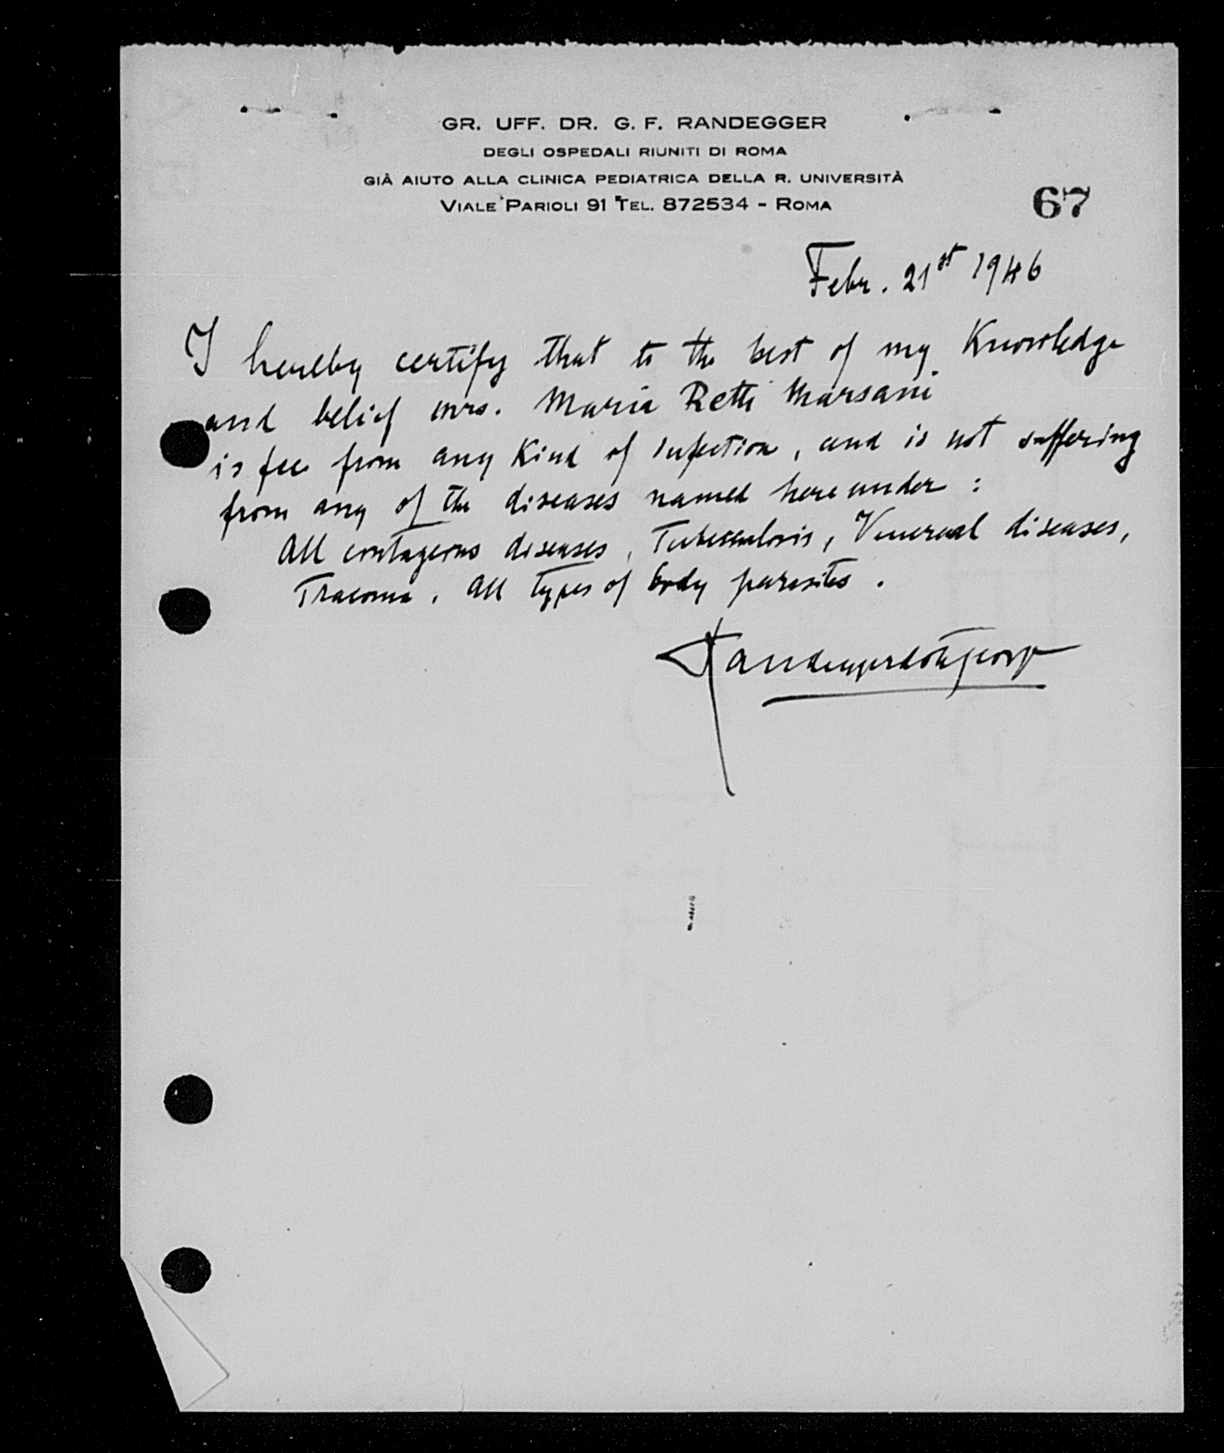 GR. UFF. DR. G. F. RANDEGGER
DEGLI OSPEDALI RIUNITI DI ROMA
GIÀ AIUTO ALLA CLINICA PEDIATRICA DELLA R. UNIVERSITÀ
VIALE PARIOLI 91 TEL. 872534 - ROMA
67
Febr. 21st 1946
I hereby certify that to the best of my Knowledge
and belief mrs. Maria Retti Marsani
is fee from any Kind of infection, and is not suffering
from any of the diseases named here under :
All contageous diseases, Tuberculosis, Venereal diseases,
Tracoma, All types of body parasites.